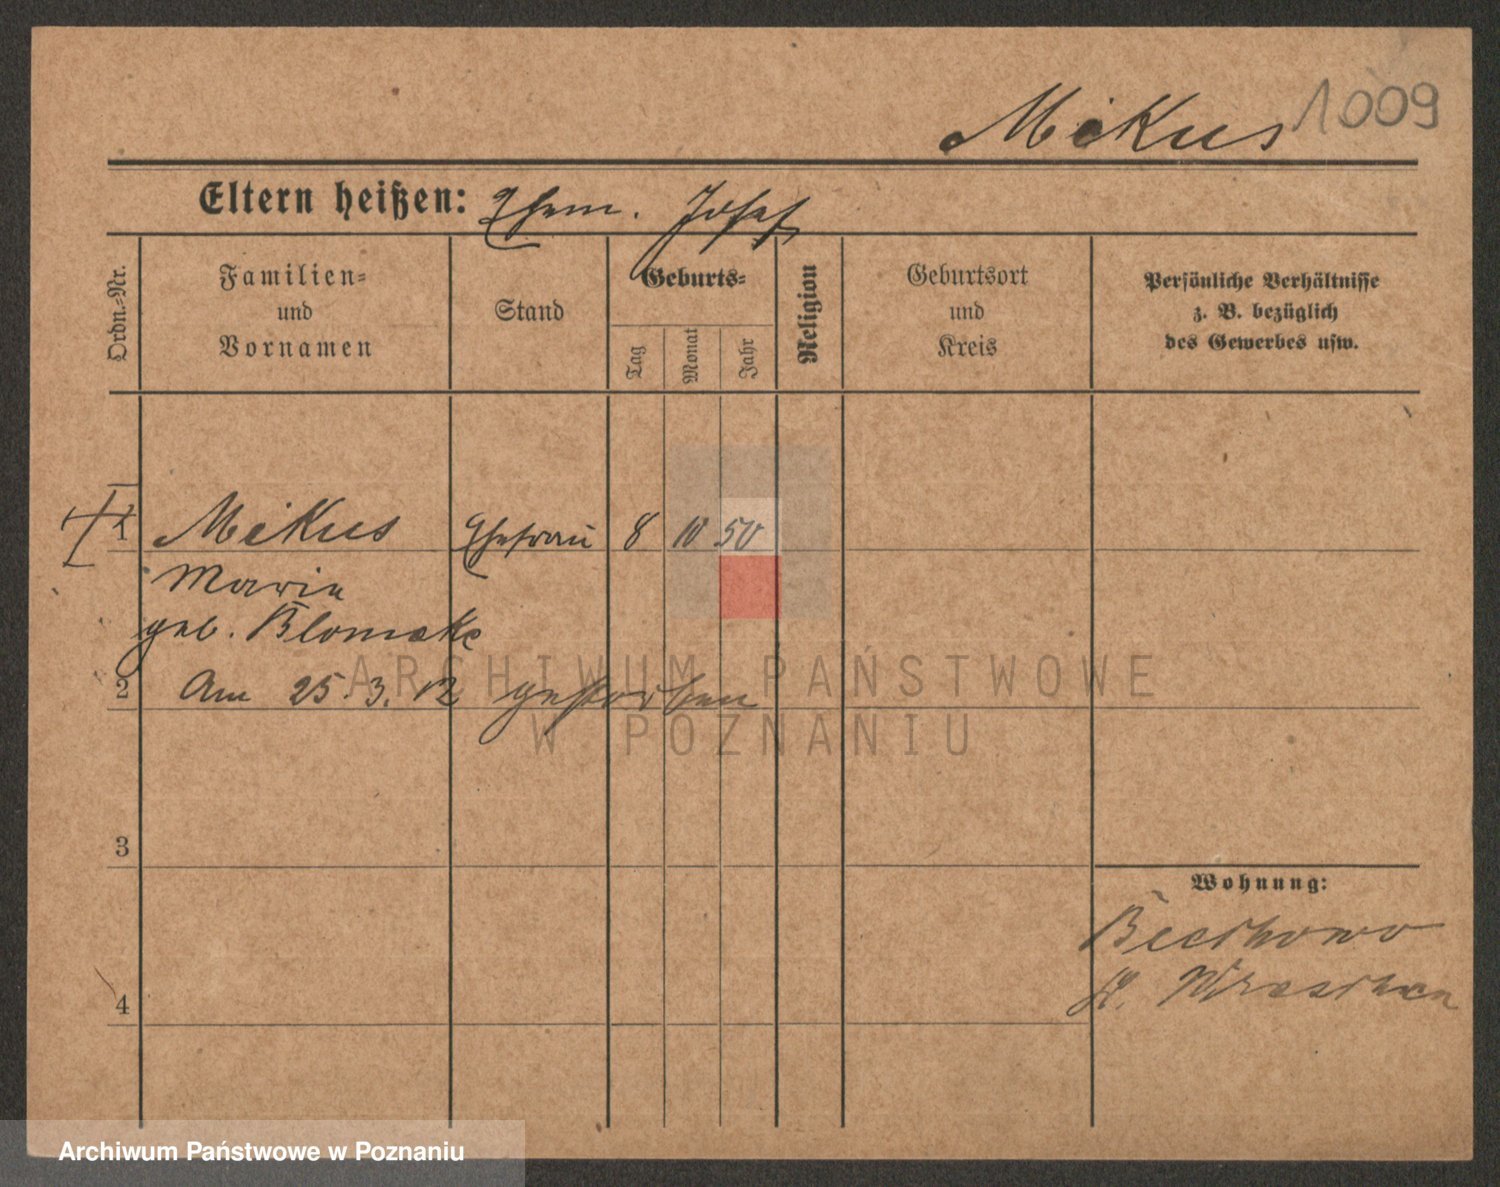 Mikus 1009
Eltern heißen: Ehem. Josef
Ordn.-Nr.
Familien-
und
Vornamen
Stand
Geburts-
Tag
Monat
Jahr
Religion
Geburtsort
und
Kreis
Persönliche Verhältnisse
z. B. bezüglich
des Gewerbes usw.
1 Mikus Ehefrau 8 10 50
Maria
geb.
2 Am 25.3.12 gestorben
ARCHIWUM PAŃSTWOWE
W POZNANIU
3
Wohnung:
4
Kr. Wreschen
Archiwum Państwowe w Poznaniu